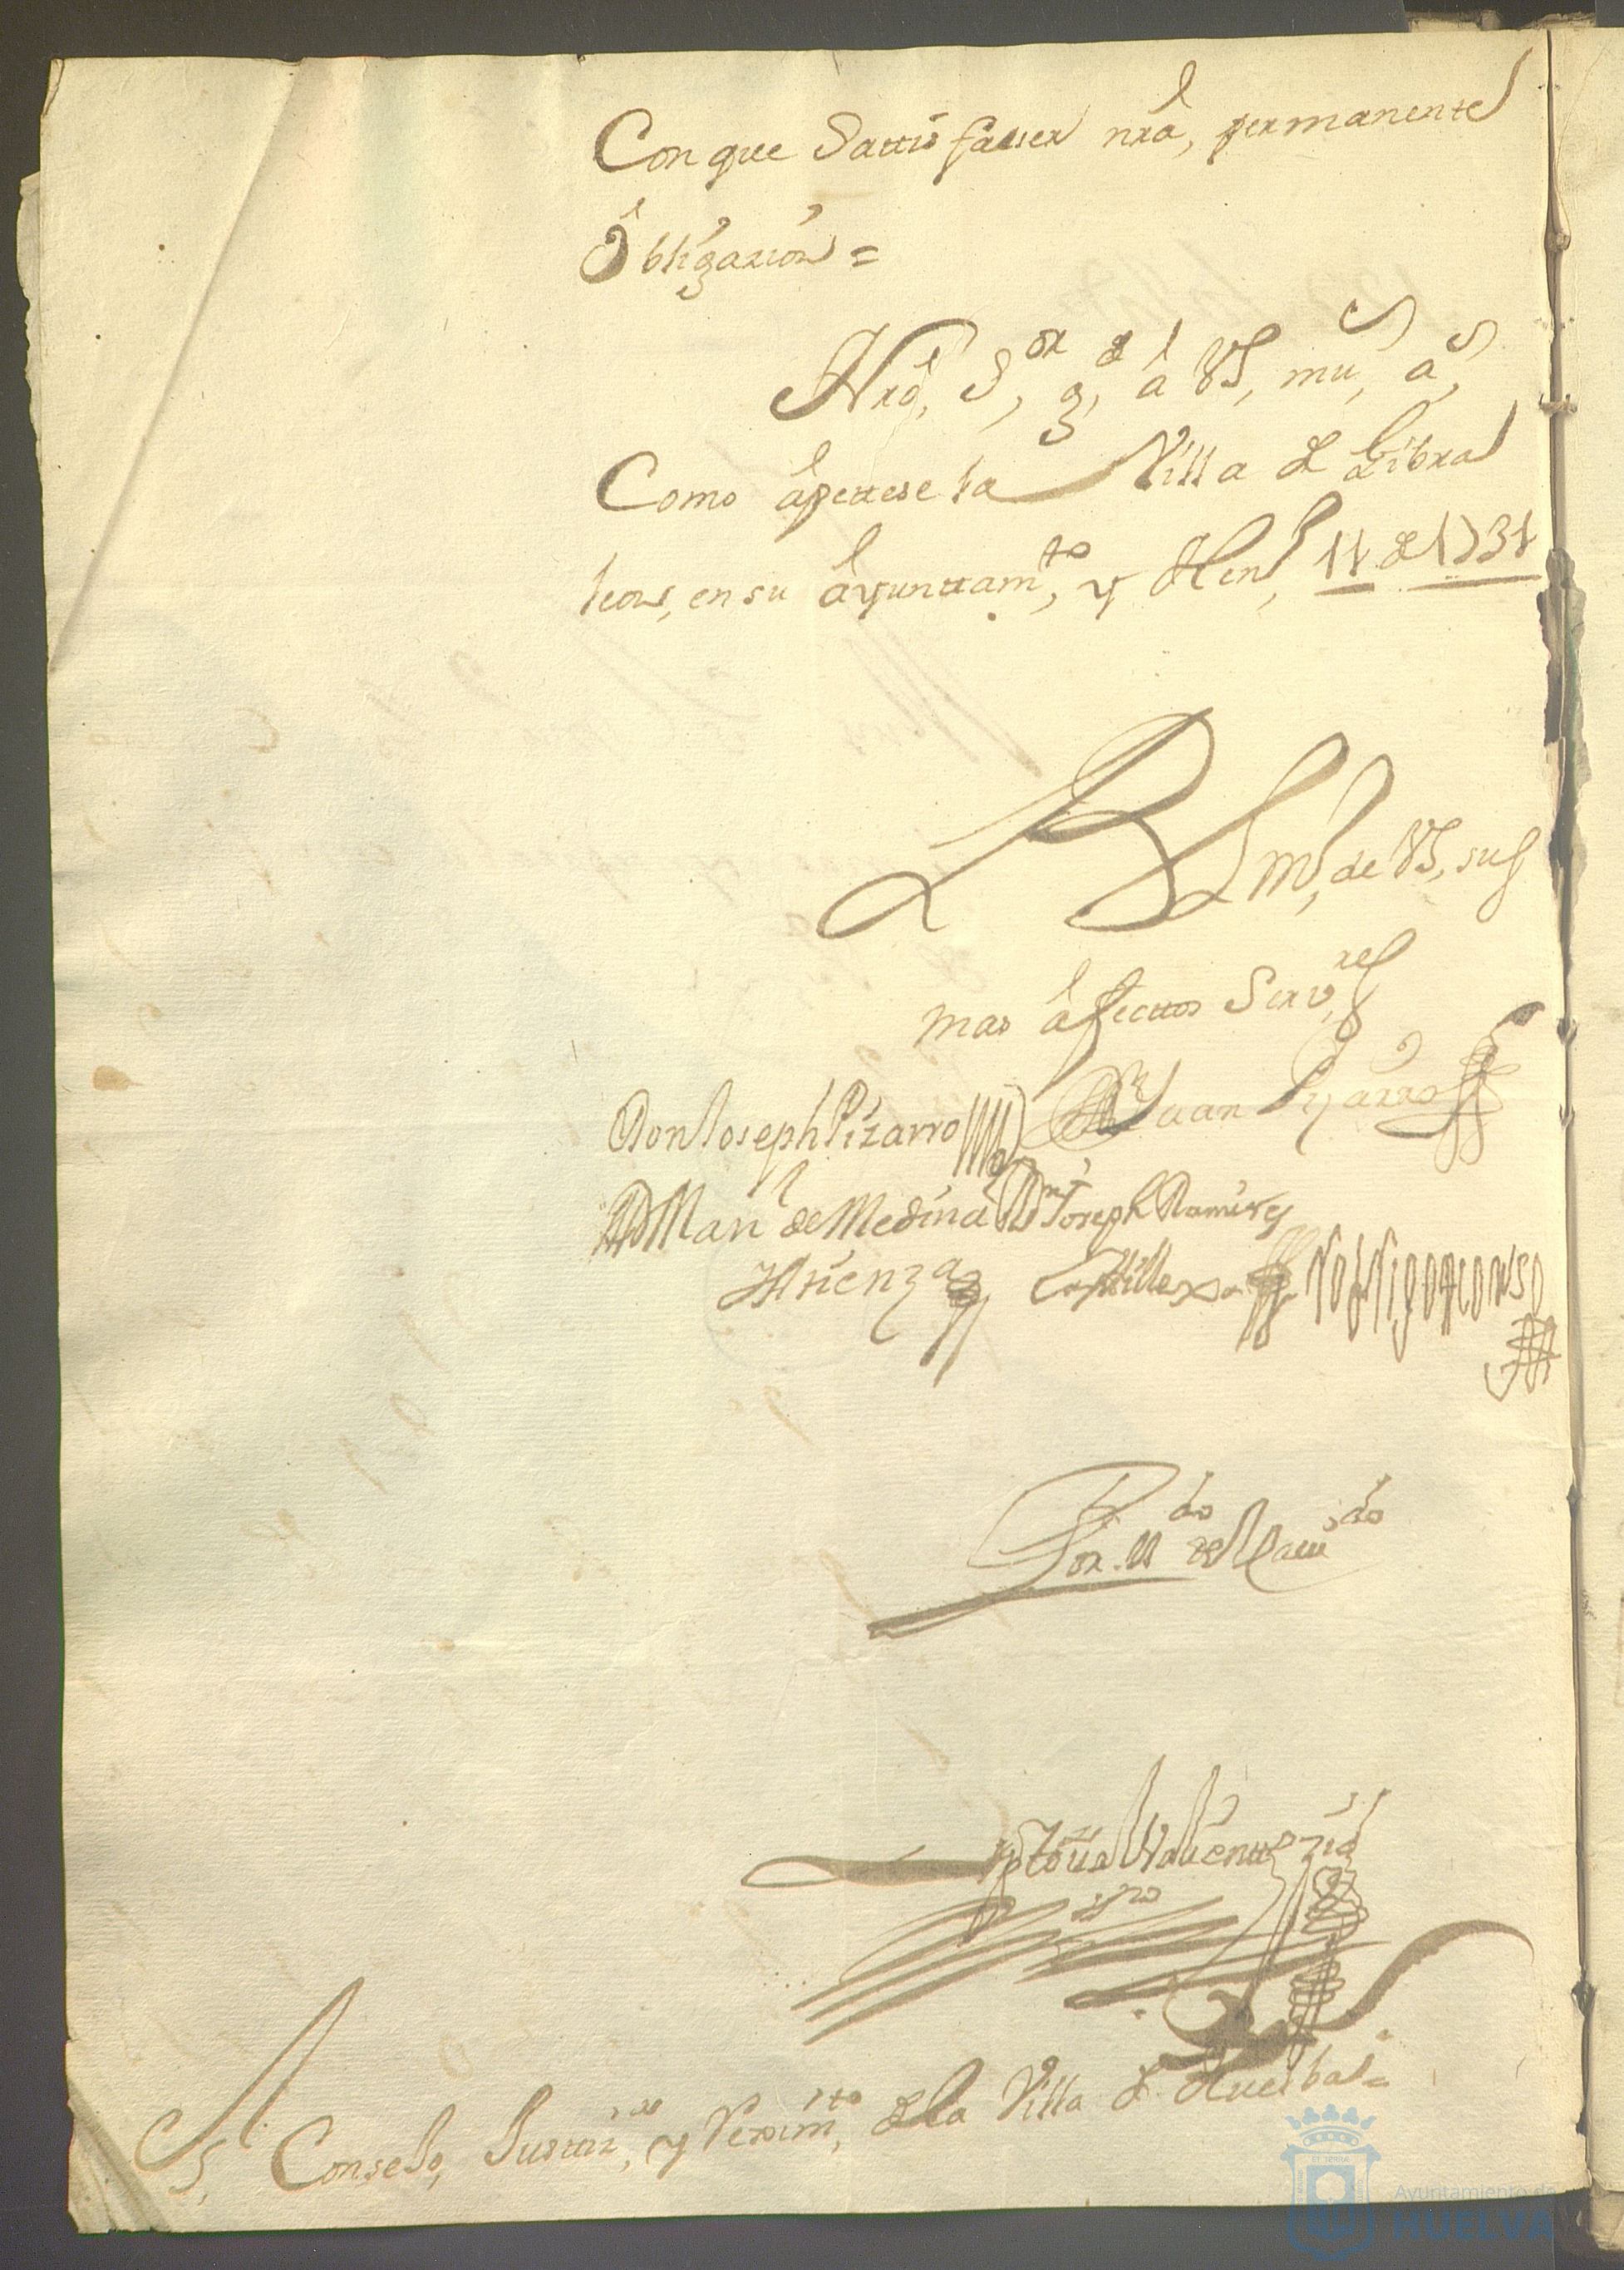 Con que Sattisfaser nrâ, permanente
Obligazion =
Nrô, Sor, gde, a VS, mus, as,
Como âpetese la Villa de Gibra
leon, en su âyunttamto, y Hen, 11 de 1731
B L M, de VS, sus
mas âfecttos Servres
Don Joseph Pizarro Dn Juan Pizarro
Dn Man de Medina Dn Joseph Ramires
Atienza
Por Mdo de Gaudo
Valenzia
sno
S, Consejo, Justiza, y Reximto, de la Villa de Huelba =
Ayuntamiento de
HUELVA